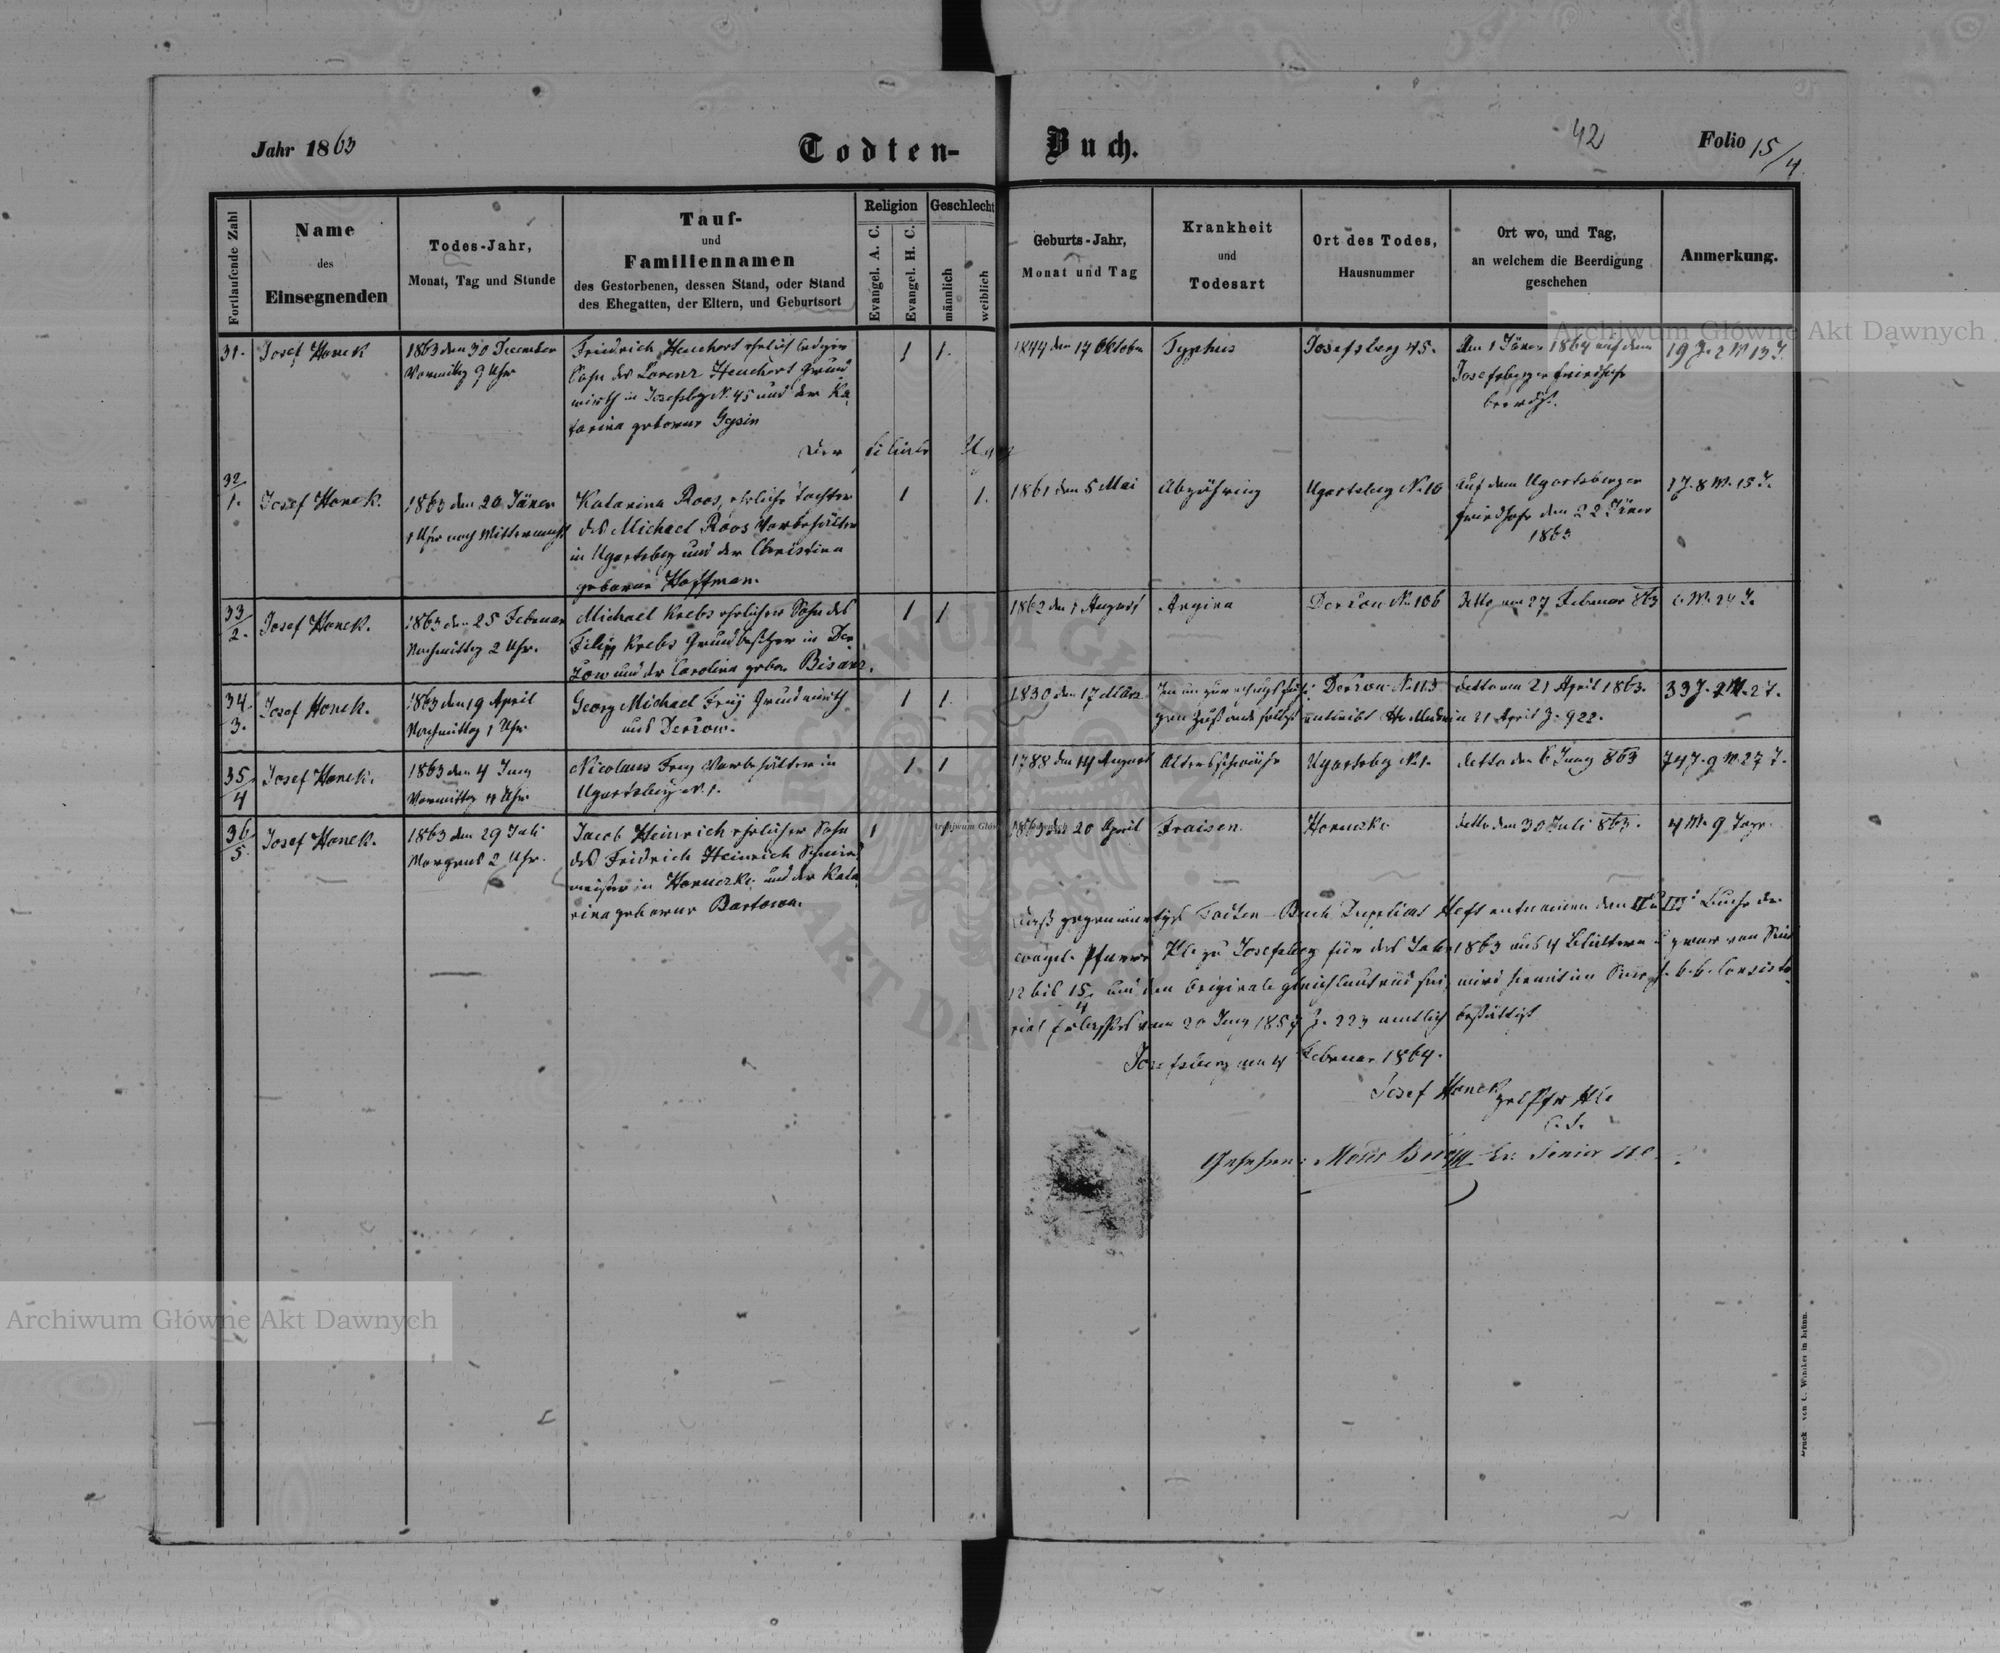 Jahr 1863
Todten-Buch.
42
Folio 15/4
Fortlaufende Zahl
Name
des
Einsegnenden
Todes-Jahr,
Monat, Tag und Stunde
Tauf-
und
Familiennamen
des Gestorbenen, dessen Stand, oder Stand
des Ehegatten, der Eltern, und Geburtsort
Religion
Evangel. A. C.
Evangel. H. C.
Geschlecht
männlich
weiblich
Geburts-Jahr,
Monat und Tag
Krankheit
und
Todesart
Ort des Todes,
Hausnummer
Ort wo, und Tag,
an welchem die Beerdigung
geschehen
Anmerkung.
31.
Josef Honek
1863 den 30 December
Vormittag 9 Uhr
Friedrich Heuchert ehelich lediger
Sohn des Lorenz Heuchert Grund
wirth in Josefsbg N. 45 und der Ka
tarina geborne Gysin
1
1.
1844 den 17 Oktober
Typhus
Josefsberg 45.
Am 1 Jäner 1864 auf dem
Josefsberger Friedhofe
beerdigt.
19 J. 2 M 13 T.
Der Filiale
32/1.
Josef Honek.
1863 den 20 Jäner
1 Uhr nach Mitternacht
Katarina Roos, eheliche Tochter
des Michael Roos Vorbehälter
in Ugartsberg und der Christina
geborne Hoffman.
1
1.
1861 den 5 Mai
Abzehrung
Ugartsberg No. 16
Auf dem Ugartsberger
Friedhofe den 22 Jäner
1863
1 J. 8 M. 15 T.
33/2.
Josef Honek.
1863 den 25 Februar
Nachmittag 2 Uhr.
Michael Krebs ehelicher Sohn des
Filipp Krebs Grundbesitzer in Der
zow und der Carolina geb. Bisanz.
1
1
1862 den 1 August
Angina
Derzow No. 106
detto am 27 Februar 863
6 M. 24 T.
34/3.
Josef Honek.
1863 den 19 April
Nachmittag 1 Uhr
Georg Michael Frey Grundwirth
aus Derzow.
1
1
1830 den 17 März
Derzow N. 113
detto am 21 April 1863.
33 J. 2 M. 2 T.
21 April Z. 922.
35/4
Josef Honek.
1863 den 4 Juny
Vormittag 4 Uhr
Nicolaus Frey Vorbehälter in
Ugartsberg N. 1.
1
1
1788 den 14 August
Altersschwäche
Ugartsbg N. 1.
detto den 6 Juny 863
74 J. 9 M 27 T.
36/5.
Josef Honek.
1863 den 29 Juli
Morgens 2 Uhr.
Jacob Heinrich ehelicher Sohn
des Fridrich Heinrich Schmied
meister in Horuczko und der Kata
rina geborne Bartowa.
1
1863 den 20 April
Fraisen
Horuczko
detto den 30 Juli 863.
4 M. 9 Tage.
Daß gegenwärtiges Todten-Buch Duplicat Heft
evangel. Pfarre H.C. zu Josefsberg für das Jahr 1863 aus 4 Blättern u. zwar von Seite
12 bis 15/4 mit dem Originale gleichlautend sei, wird hiemit im Sinne
Erlasses vom 20 Juny 1854 Z. 223 amtlich bestättigt
Josefsberg am 4 Februar 1864.
Josef Honek
Gesehen:
Senior
Druck von C. Winiker in Brünn.
Archiwum Główne Akt Dawnych
Archiwum Główne Akt Dawnych